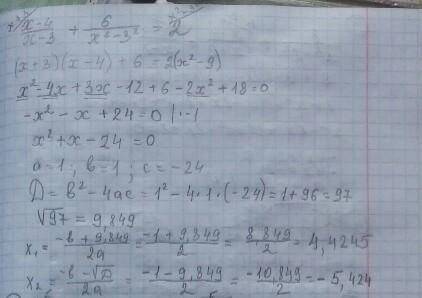 x-4/x-3 + 6/x²-3² = 2
(x+3)(x-4)+6=2(x²-9)
x²-4x+3x-12+6-2x²+18=0
-x²-x+24=0 |·-1
x²+x-24=0
a=1; b=1; c=-24
D=b²-4ac=1²-4·1·(-24)=1+96=97
√97=9,849
x₁=-b+9,849/2a=-1+9,849/2=8,849/2=4,4245
x₂=-b-√D/2a=-1-9,849/2=-10,849/2=-5,424